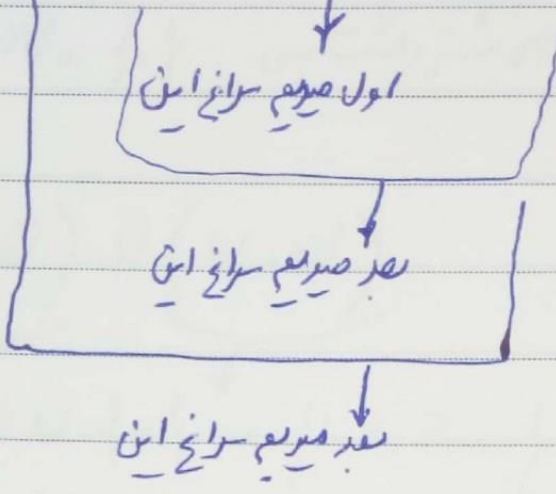 اول میریم سراغ این
بعد میریم سراغ این
بعد میریم سراغ این